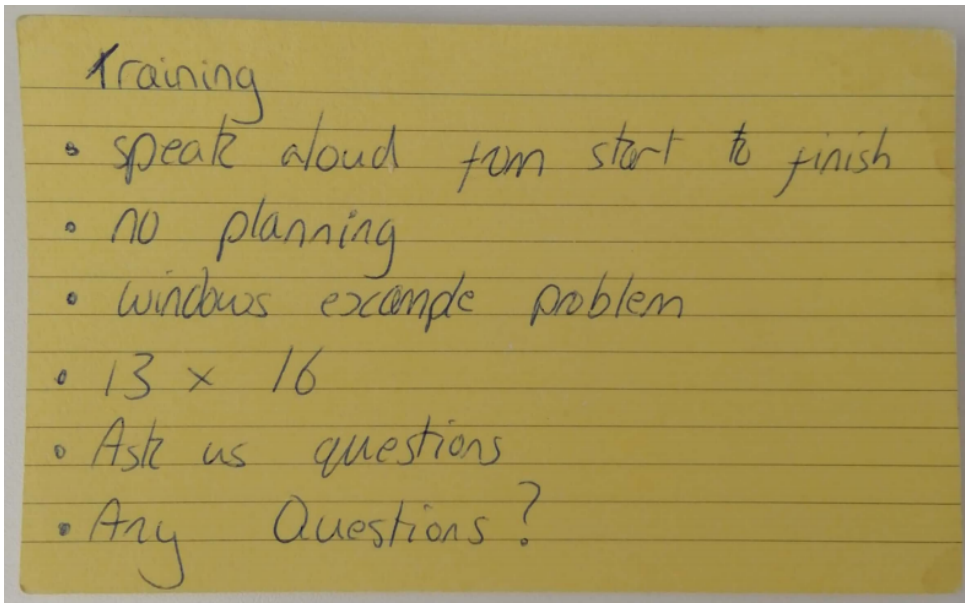 Training
• speak aloud from start to finish
• no planning
• windows example problem
• 13 × 16
• Ask us questions
• Any Questions?